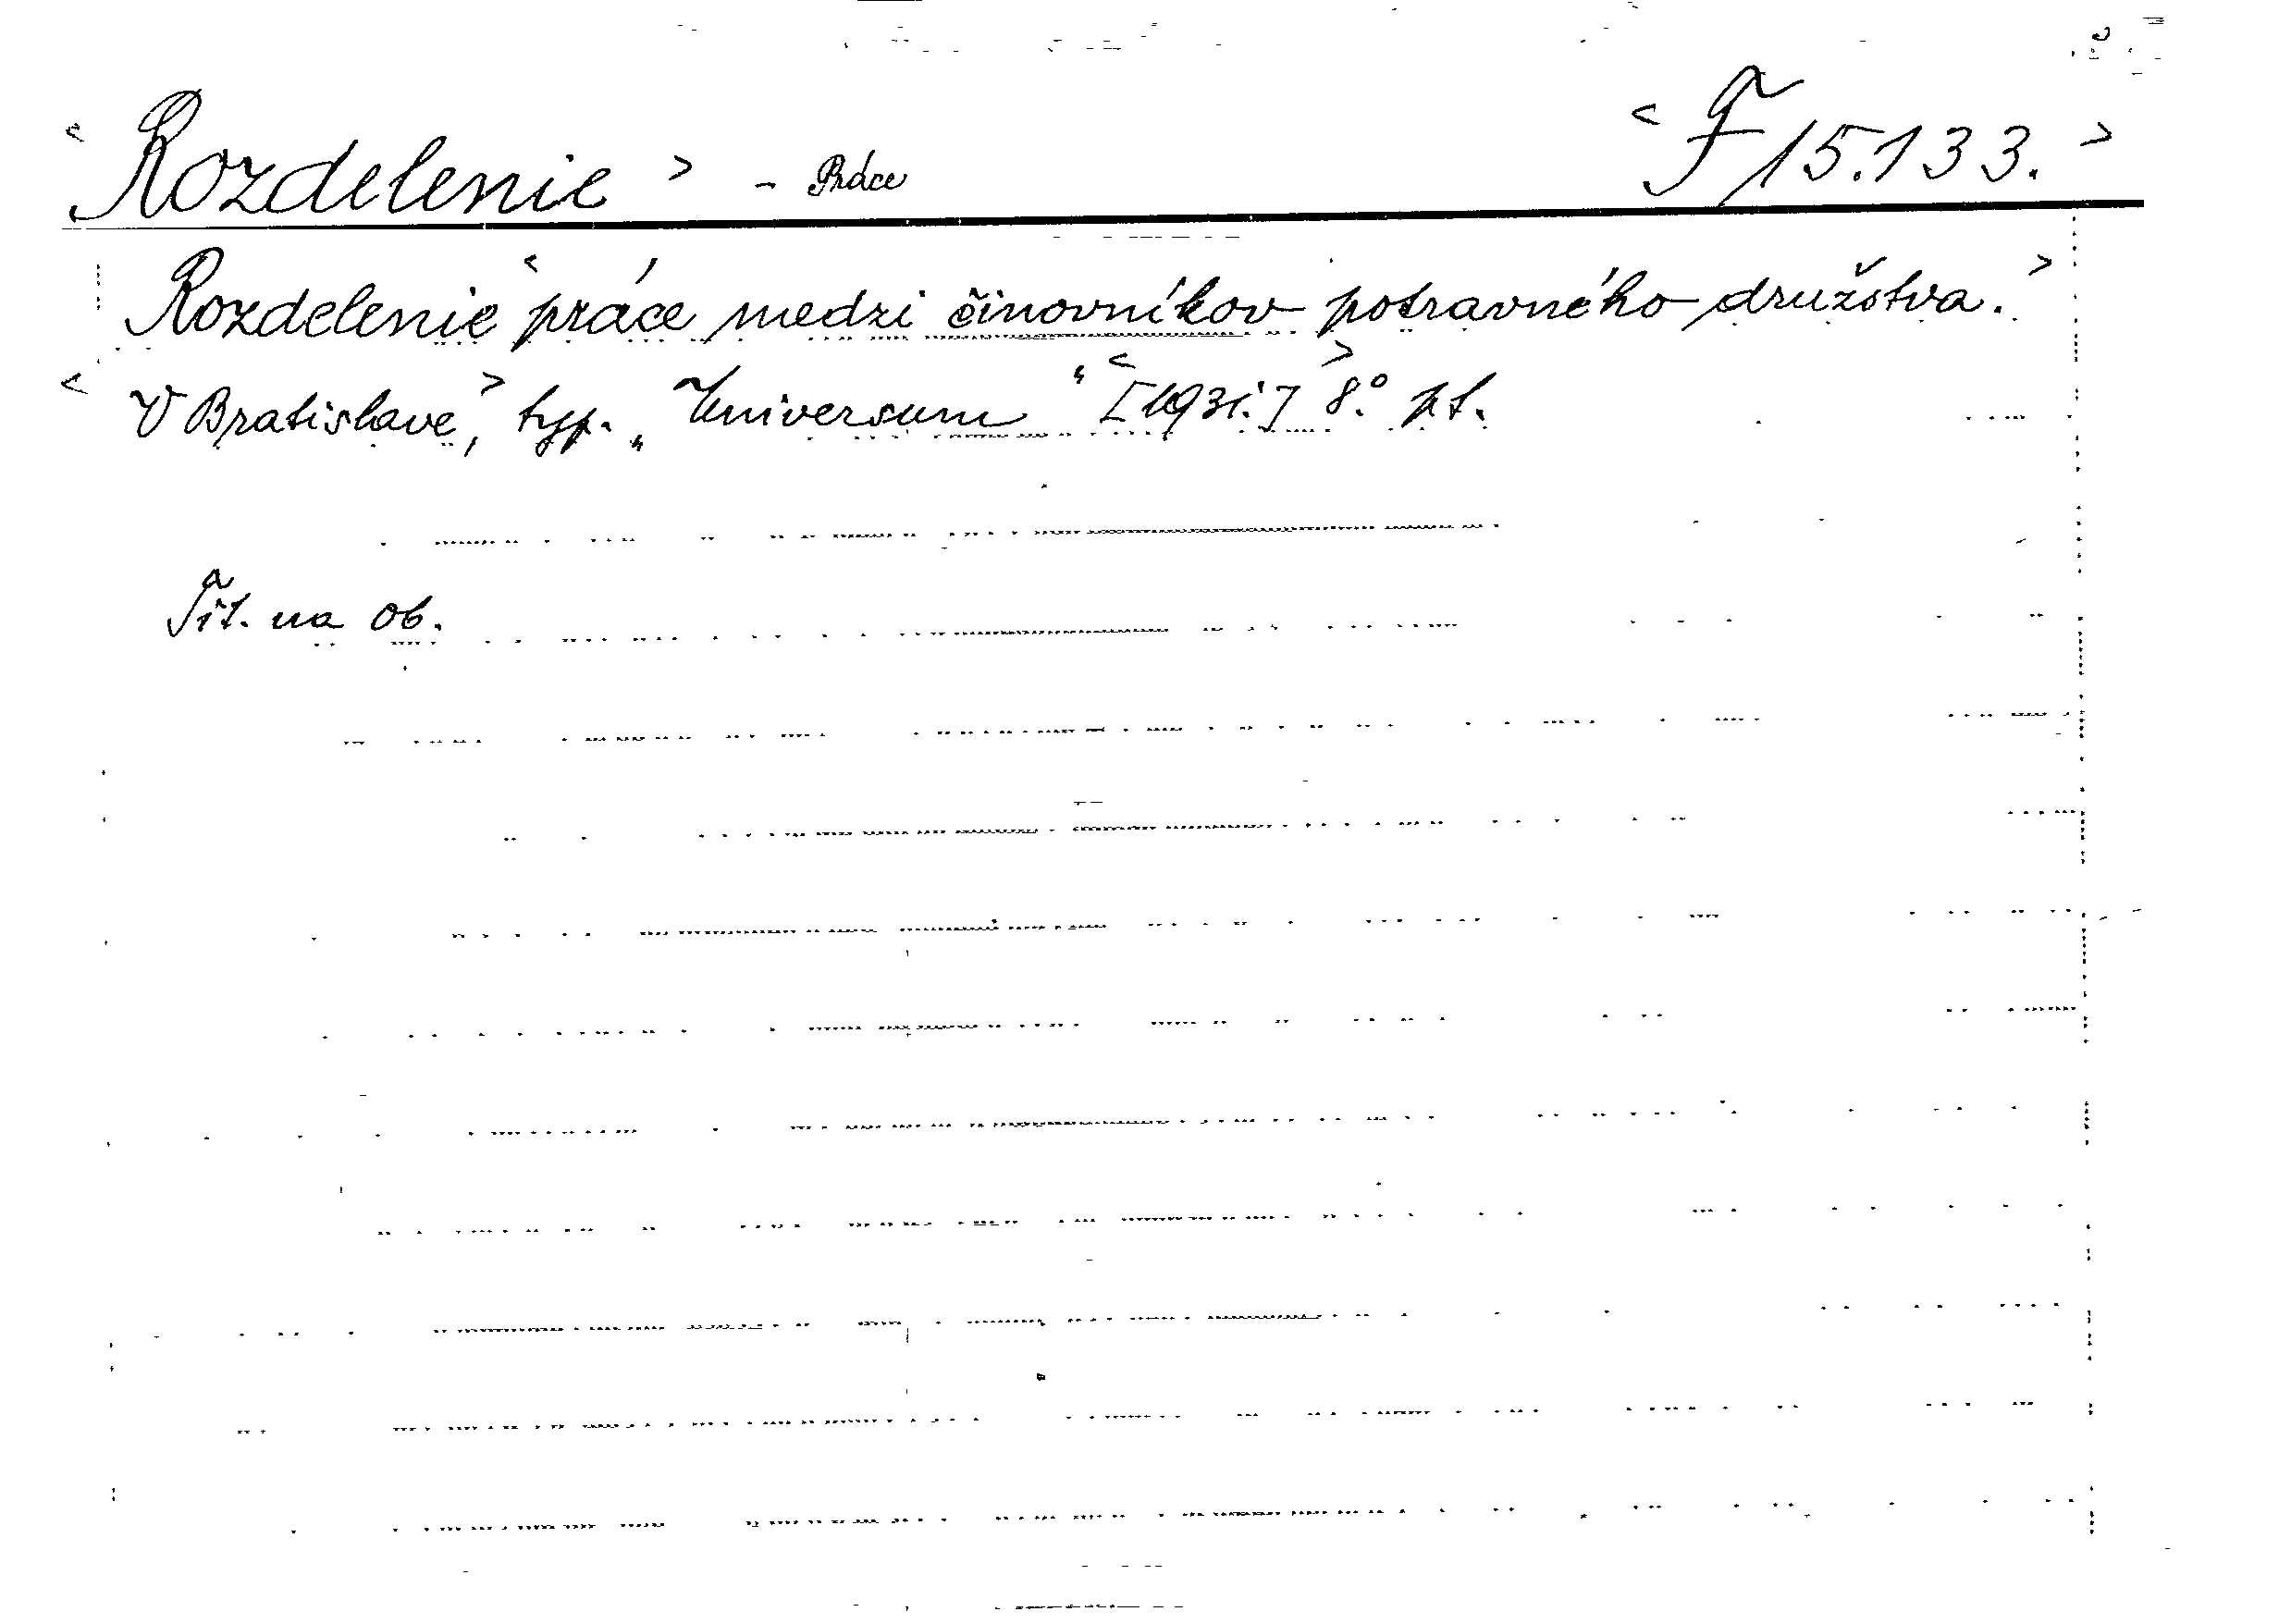 < Rozdelenie > - Práce < F 15.133. >
Rozdelenie < práce medzi činovníkov potravného družstva. >
< V Bratislave, > typ. „Universum“ < [1931.] > 8.° pt.
Tit. na ob.